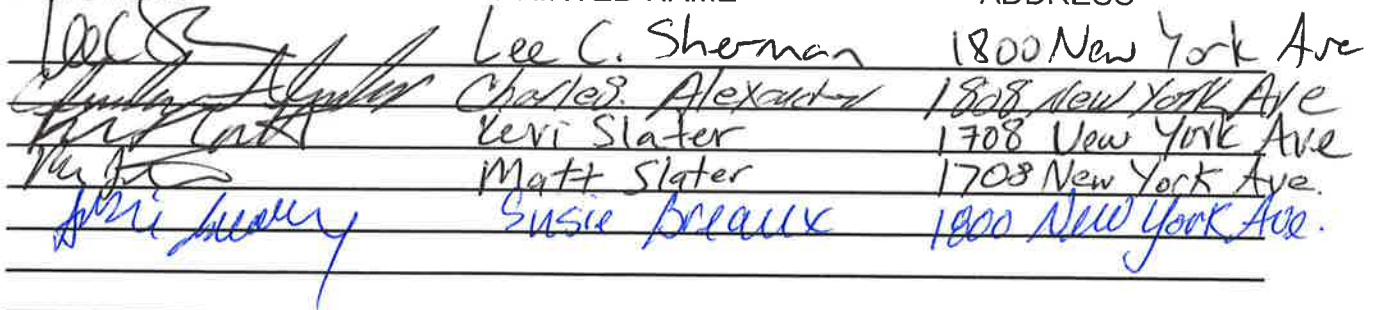 PRINTED NAME ADDRESS
Lee C. Sherman 1800 New York Ave
Charles. Alexander 1808 New York Ave
Keri Slater 1708 New York Ave
Matt Slater 1708 New York Ave.
Susie Breaux 1800 New York Ave.